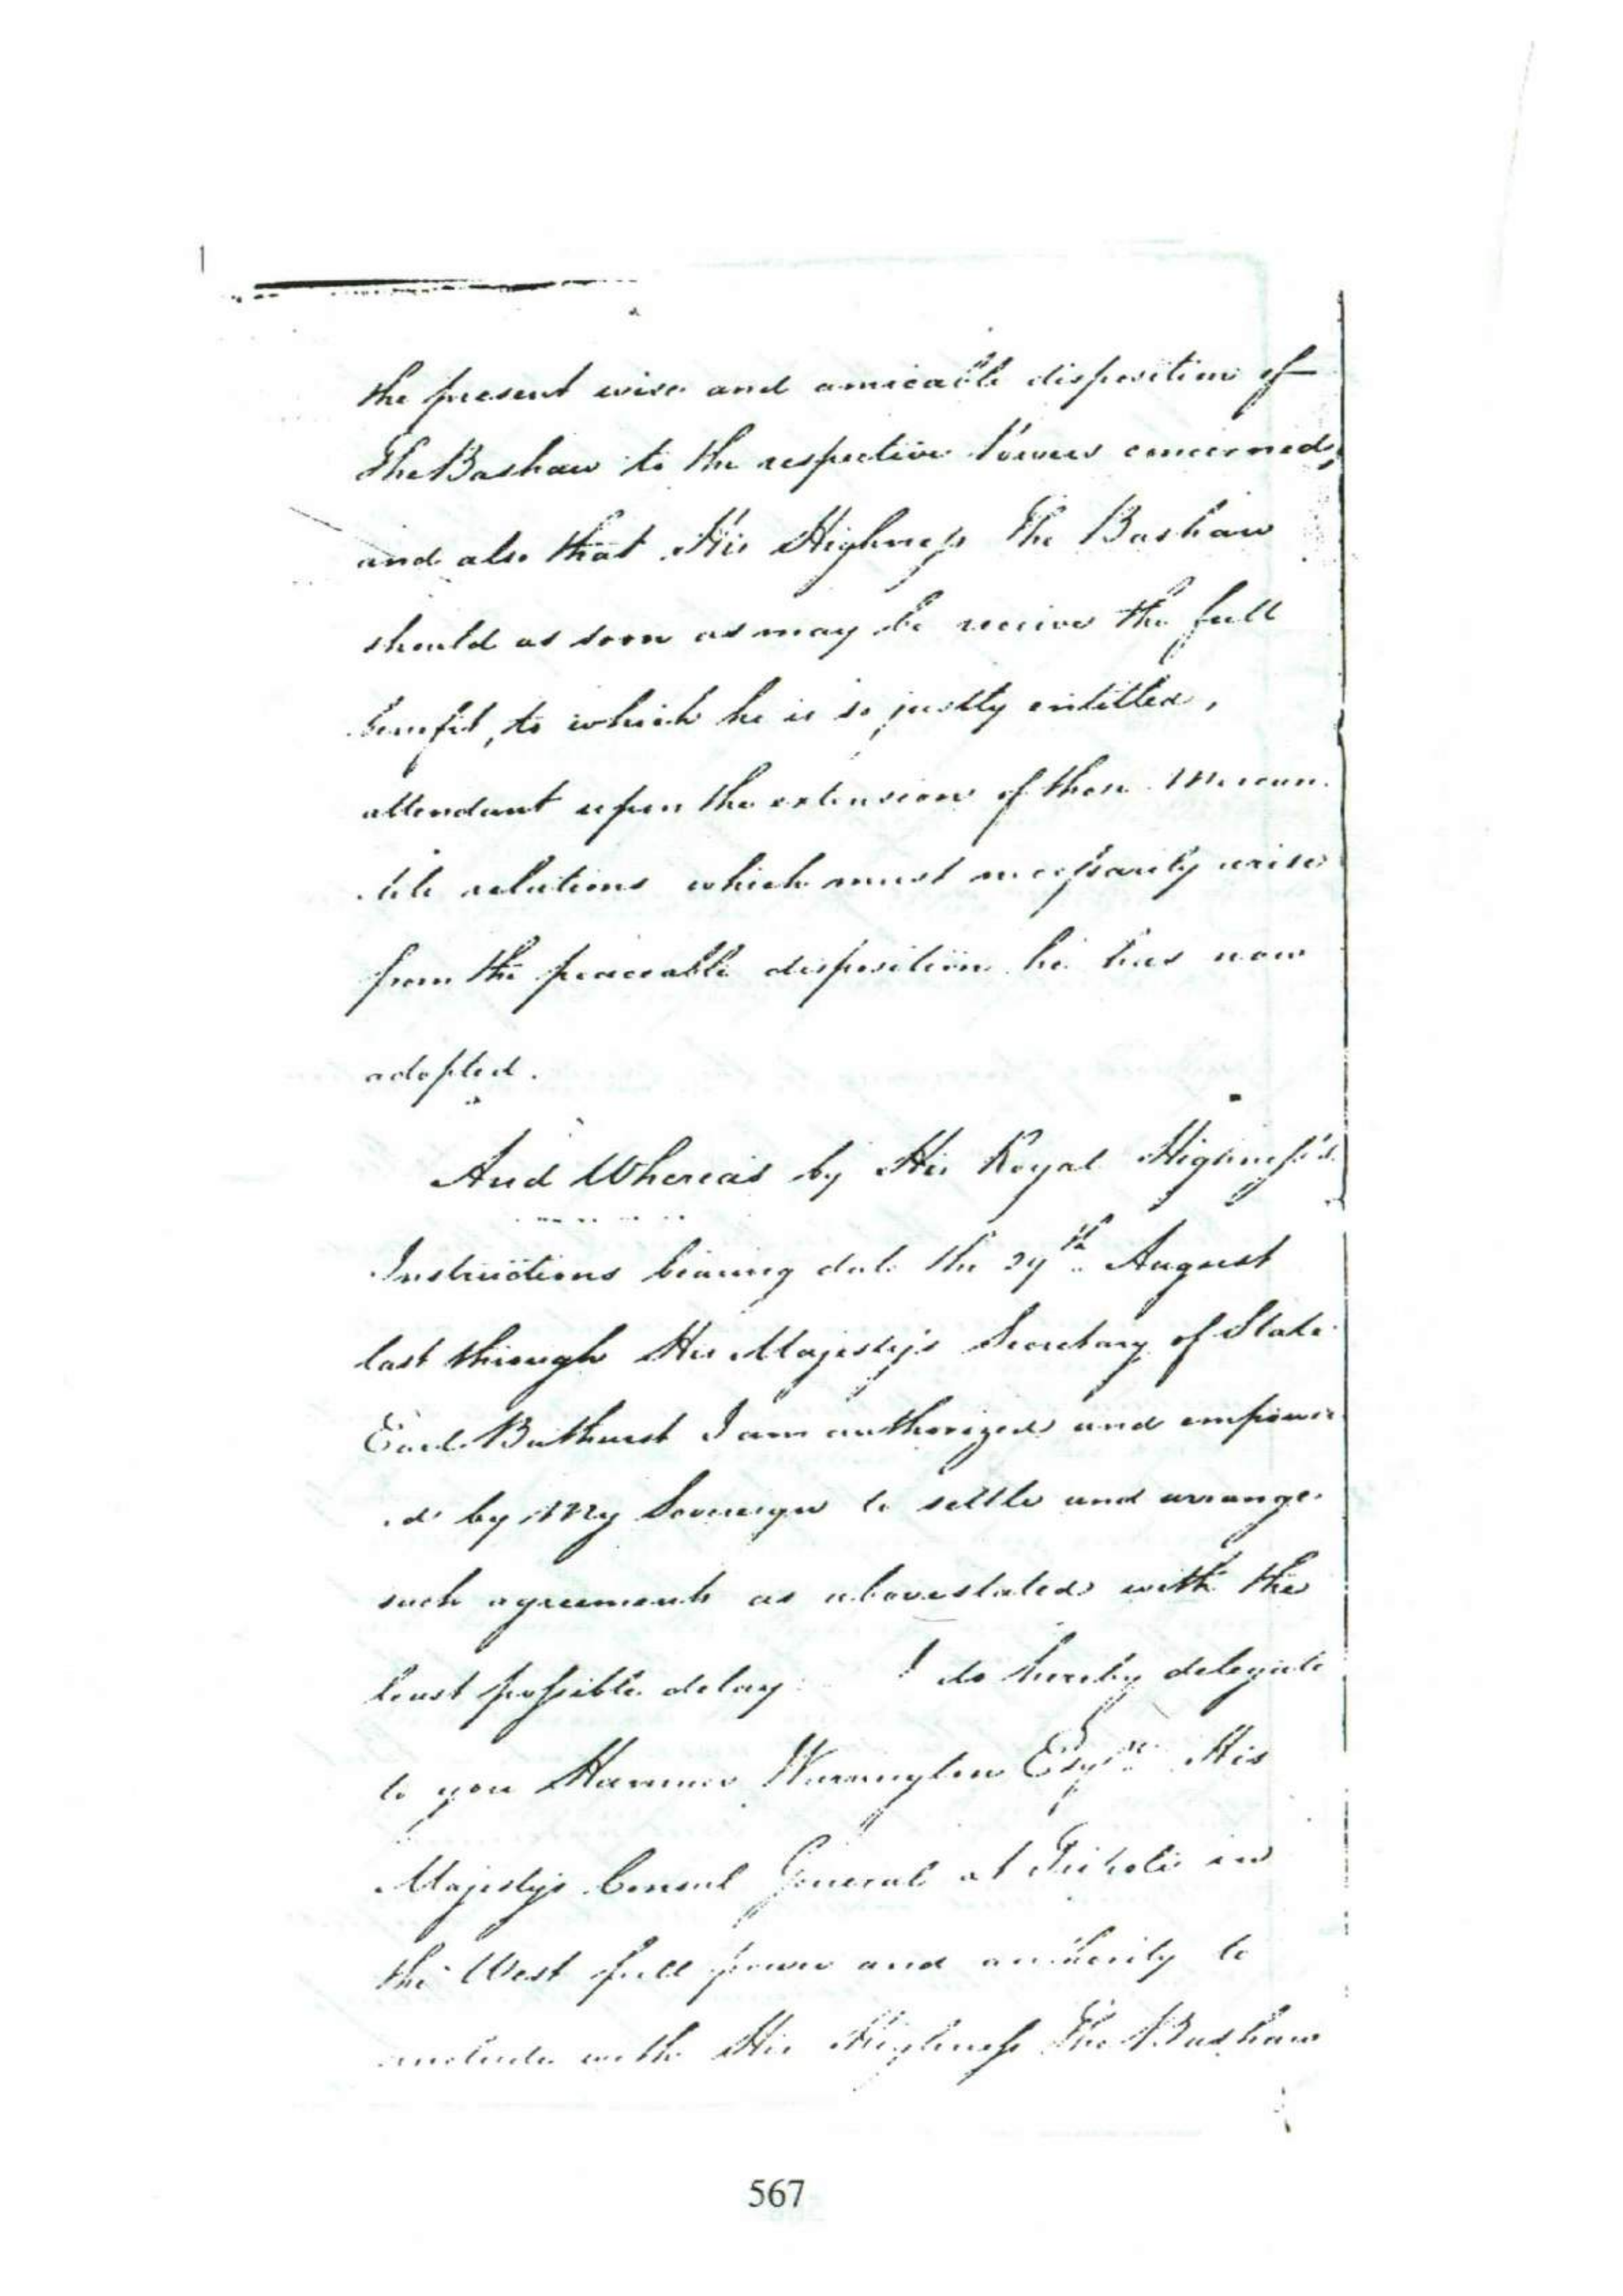 the present wise and amicable disposition of
The Bashaw to the respective Powers concerned,
and also that His Highness The Bashaw
should as soon as may be receive the full
benefit, to which he is so justly entitled,
attendant upon the extension of those Mercan
tile relations which must necessarily arise
from the peaceable disposition he has now
adopted.
And Whereas by His Royal Highness's
Instructions bearing date the 29th August
last through His Majesty's Secretary of State
Earl Bathurst I am authorized and empower
ed by My Sovereign to settle and arrange
such agreements as abovestated with the
least possible delay I do hereby delegate
to you Hanmer Warrington Esqre His
Majesty's Consul General at Tripoli in
the West full power and authority to
conclude with His Highness The Bashaw
567